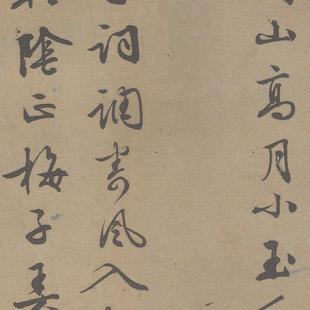 山高月小玉
詞調寄風入
陰正梅子